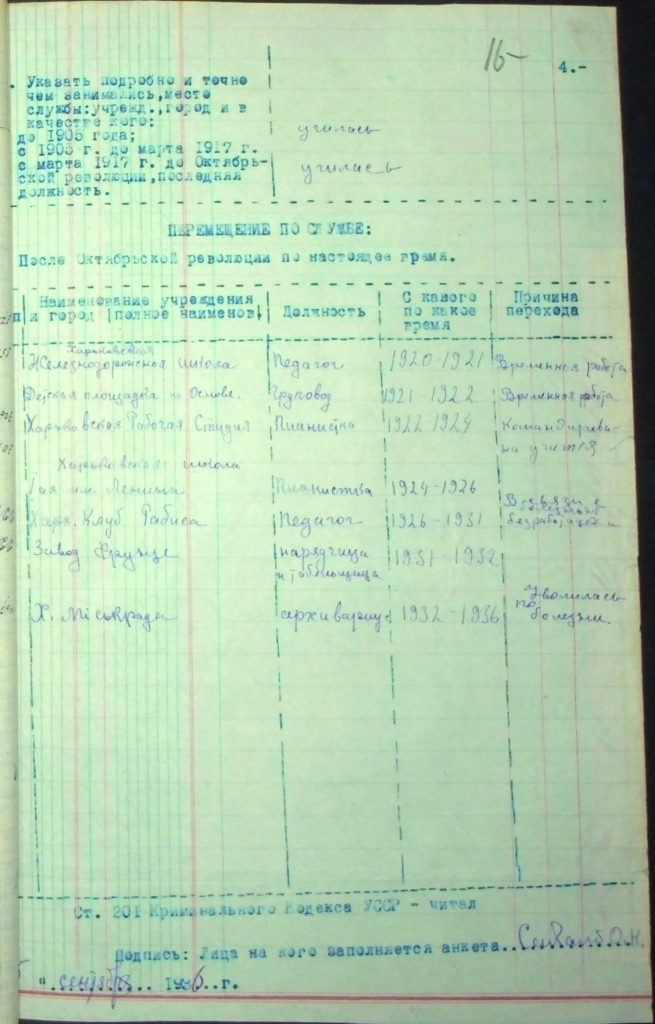 16-
4.-
. Указать подробно и точно
чем занимались,место
службы:учрежд.,город и в
качестве кого:
до 1905 года;
с 1905 г. до марта 1917 г. училась
с марта 1917 г. до Октябрь-
ской революции,последняя училась
должность.
ПЕРЕМЕЩЕНИЕ ПО СЛУЖБЕ:
После Октябрьской революции по настоящее время.
Наименование учреждения Должность С какого Причина
п и город (полное наименов. по какое перехода
время
Харьковская
Железнодорожная школа Педагог 1920-1921 Временная работа
Детская площадка на Основе. Груповод 1921-1922 Временная работа
Харьковская Рабочая Студия Пианистка 1922-1924
на учёбу
Харьковская школа
1ая им. Ленина Пианистка 1924-1926
В связи с
Харк. Клуб Рабиса Педагог 1926-1931
Завод Фрунзе нарядчица 1931-1932
и табельщица
Уволилась
Х. Міськрада архивариус 1932-1936 по болезни.
Ст. 201 Криминального Кодекса УССР - читал
Подпись: Лица на кого заполняется анкета..
" сентября 1936 г.